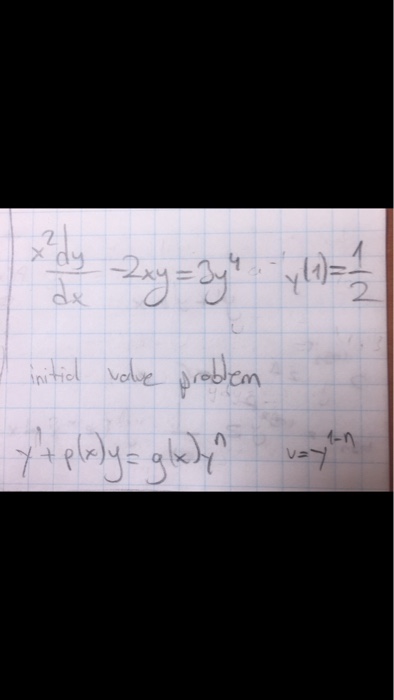 x² dy/dx - 2xy = 3y⁴   y(1) = 1/2
initial value problem
y' + p(x)y = g(x)yⁿ   v = y¹⁻ⁿ